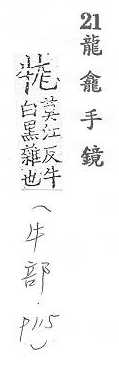 21龍龕手鏡
牻莫江反牛
白黑雜也
(牛部.
P115)